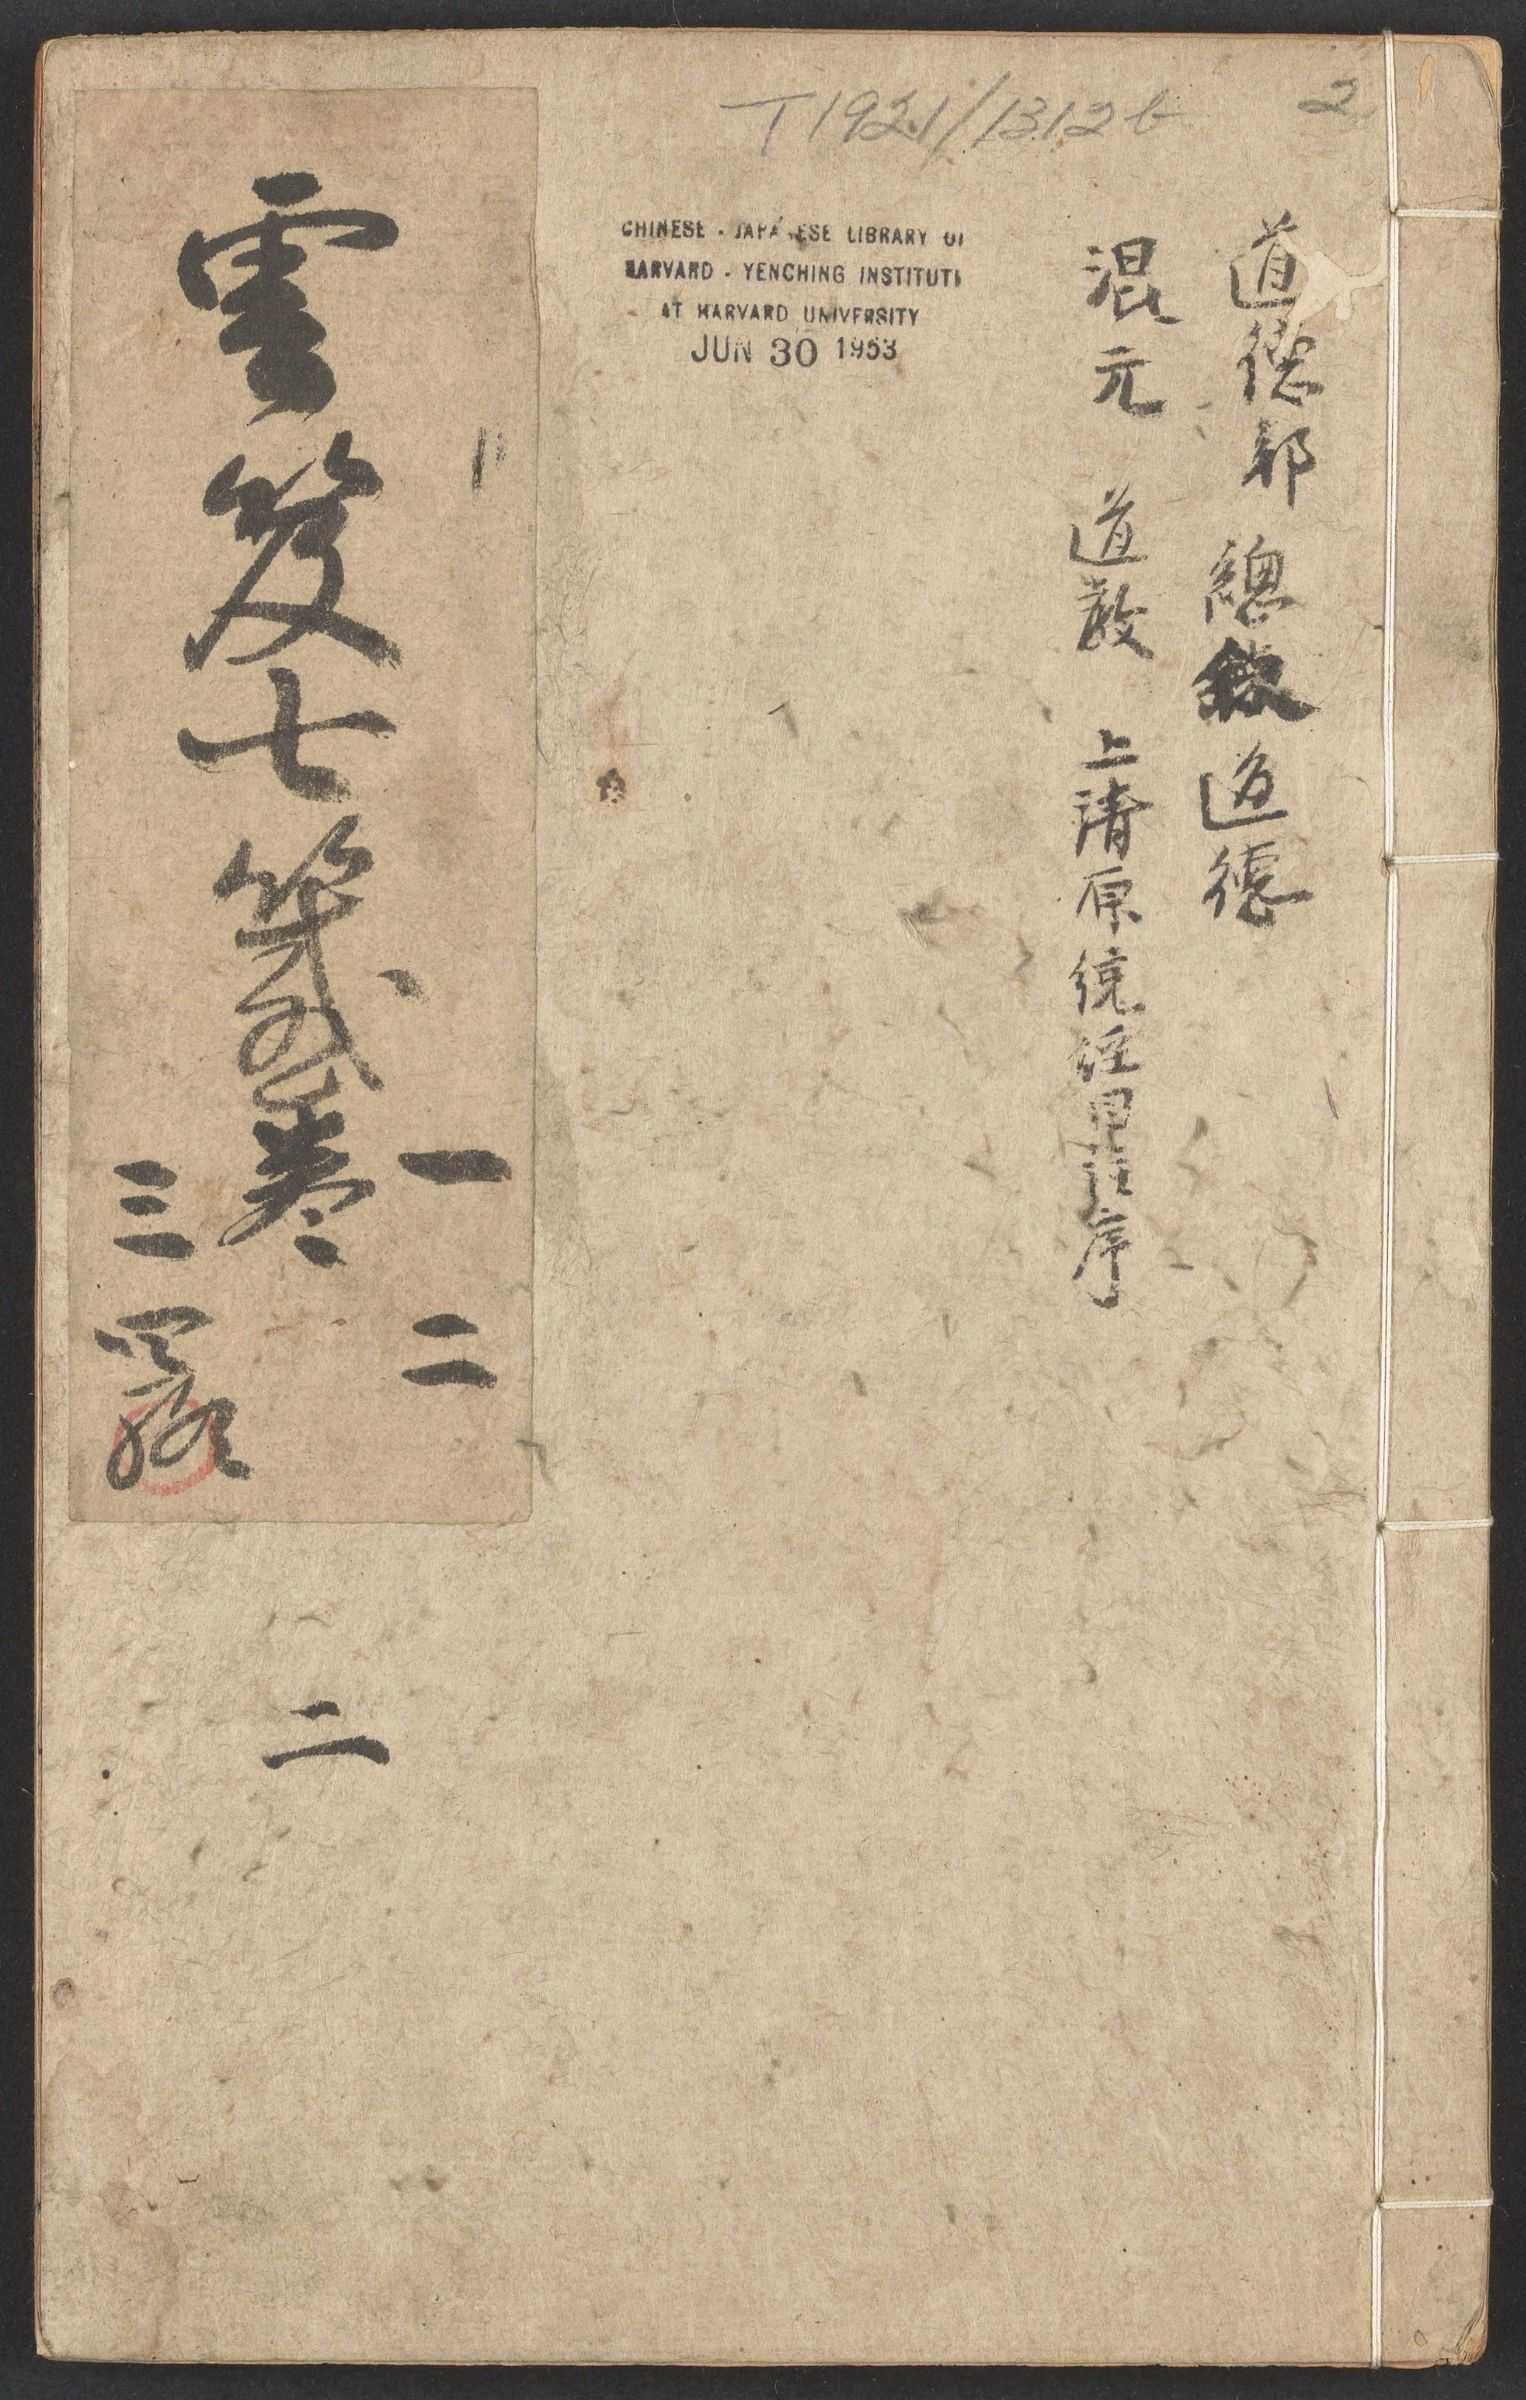 T1921/1312b
2
CHINESE - JAPANESE LIBRARY OF
HARVARD - YENCHING INSTITUTE
AT HARVARD UNIVERSITY
JUN 30 1953
道德部 總敘道德
混元 道教 上清原統經目註序
雲笈七籤
卷
一
二
三
四
二